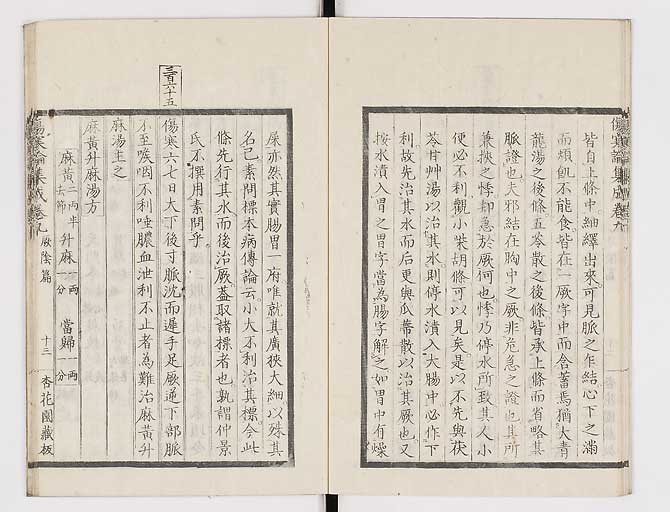 傷寒論集成卷九
皆自上條中紬繹出來可見脈之乍結心下之滿
而煩飢不能食皆在一厥字中而含蓄焉猶大青
龍湯之後條五苓散之後條皆承上條而省略其
脈證也夫邪結在胸中之厥非危急之證也其所
兼挾之悸却急於厥何也悸乃停水所致其人小
便必不利觀小柴胡條可以見矣是以不先與茯
苓甘艸湯以治其水則停水漬入大腸中必作下
利故先治其水而后更與瓜蔕散以治其厥也又
按水漬入胃之胃字當為腸字解之如胃中有燥
屎亦然其實腸胃一府唯就其廣狹大細以殊其
名已素問標本病傳論云小大不利治其標今此
條先行其水而後治厥蓋取諸標者也孰謂仲景
氏不撰用素問乎
三百六十五
傷寒六七日大下後寸脈沈而遲手足厥逆下部脈
不至喉咽不利唾膿血泄利不止者為難治麻黃升
麻湯主之
麻黃升麻湯方
麻黃二兩半去節 升麻一兩一分 當歸一兩一分
傷寒論集成卷九 厥陰篇 十三 杏花園藏板